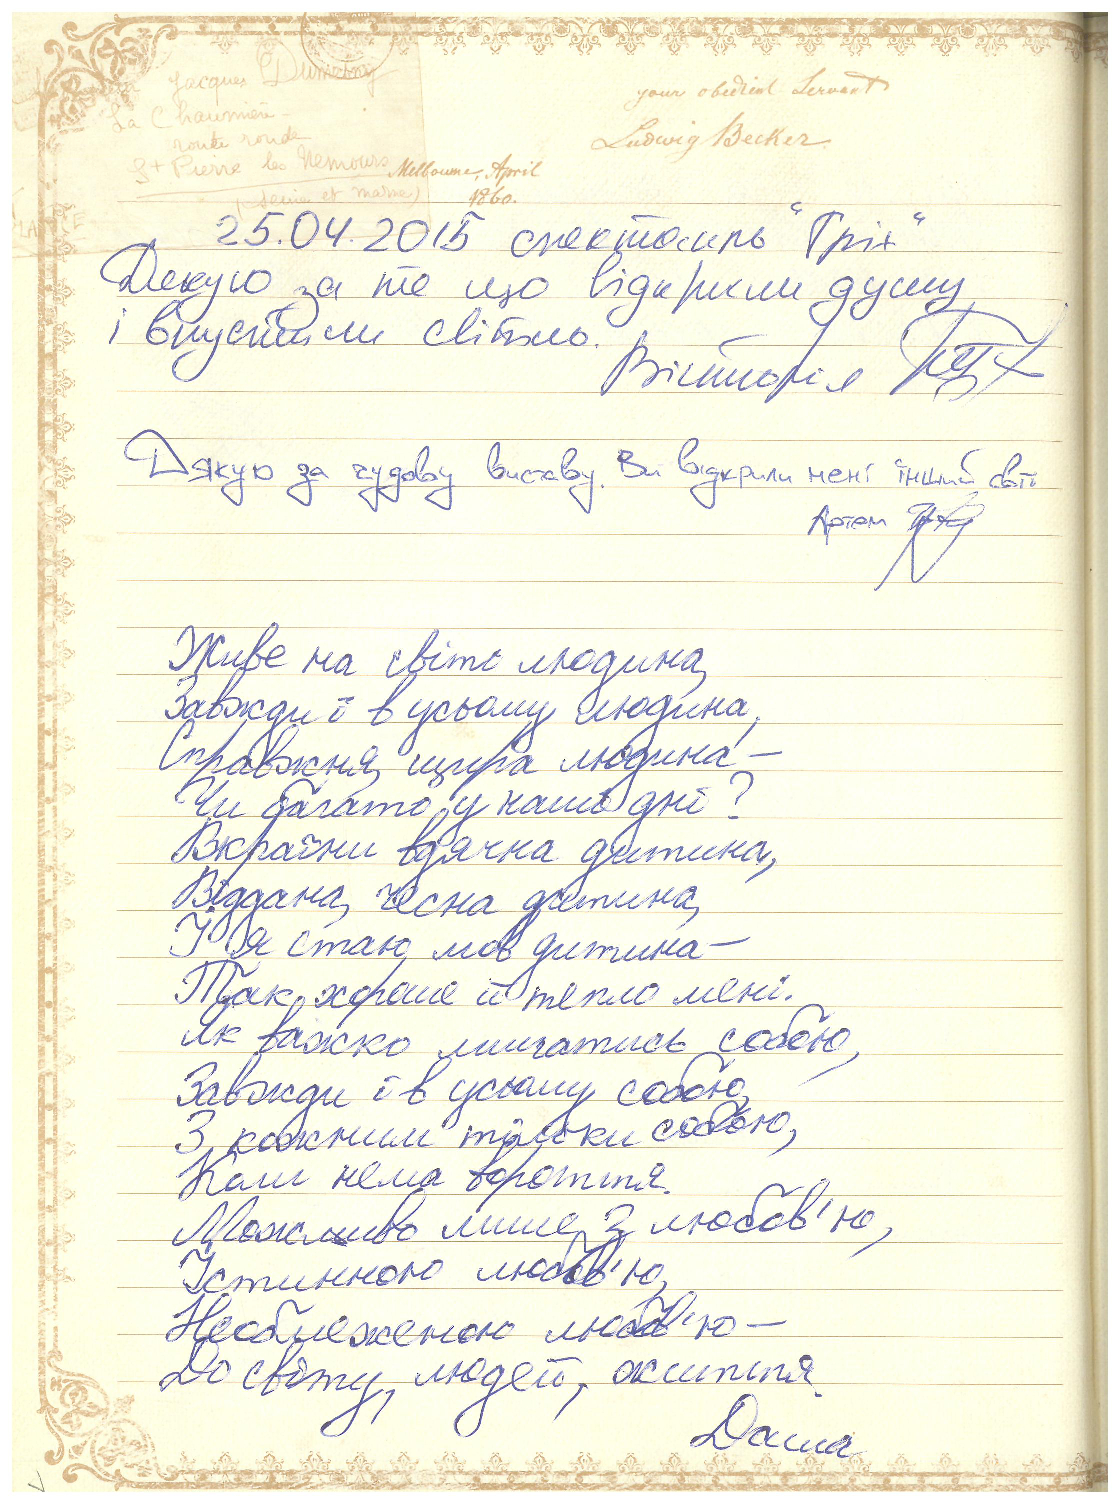 Jacques Dumesny
your obedient Servant
La Chaumière -
Ludwig Becker.
route ronde
St Pierre les Nemours
Melbourne, April
(Seine et Marne)
1860.
25.04.2015 спектакль "Гріх"
Дякую за те що відкрили душу
і впустили світло.
Вікторія
Дякую за чудову виставу. Ви відкрили мені інший світ
Артем
Живе на світі людина,
Завжди і в усьому людина,
Справжня, щира людина –
Чи багато у наші дні?
Вкраїни вдячна дитина,
Віддана, чесна дитина,
І я стаю, мов дитина –
Так хороше й тепло мені.
Як важко лишатись собою,
Завжди і в усьому собою,
З кожним тільки собою,
Коли нема вороття.
Можливо лише з любов'ю,
Істинною любов'ю,
Необмеженою любов'ю –
До світу, людей, життя.
Даша